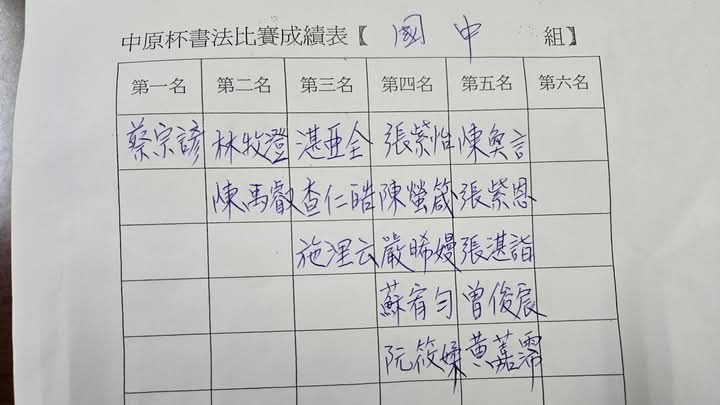 中原杯書法比賽成績表【 國中 組】
第一名 第二名 第三名 第四名 第五名 第六名
蔡宗諺 林牧澄 湛亞全 張紫怡 陳奐言
陳馬叡 查仁皓 陳螢箴 張紫恩
施浬云 嚴晞嫚 張湛詣
蘇宥勻 曾俊宸
阮筱媃 黃嘉霈